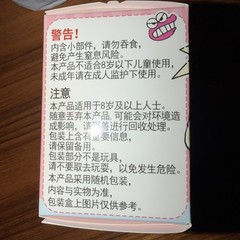 警告！
内含小部件，请勿吞食，
避免产生窒息风险。
本产品不适合8岁以下儿童使用，
未成年请在成人监护下使用。
注意
本产品适用于8岁及以上人士。
随意丢弃本产品，可能会对环境造
成影响，请 进行回收处理。
包装上含有重要信息，
请保留备用。
包装部分不是玩具，
请不要取去玩耍，以免发生危险。
本产品采用随机包装，
内容与实物为准，
包装盒上图片仅供参考。